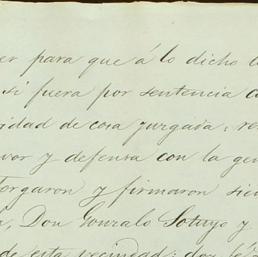 er para que á lo dicho l
si fuera por sentencia c
ridad de cosa juzgada, re
vor y defensa con la gen
torgaron y firmaron sie
Don Gonzalo Sotuyo y
de esta vecindad: doy fé